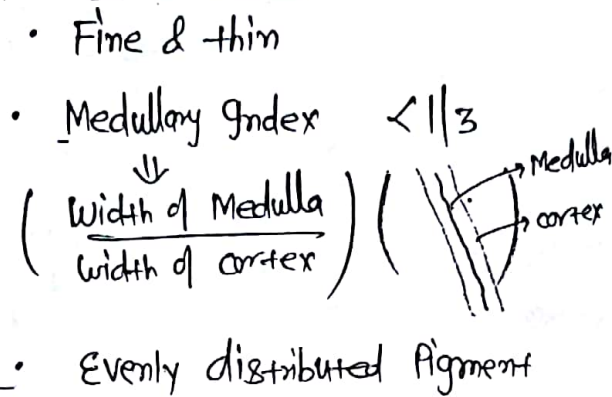 • Fine & thin
• Medullary Index < 1/3
⇓
( Width of Medulla / Width of cortex ) (
Medulla
cortex
• Evenly distributed Pigment